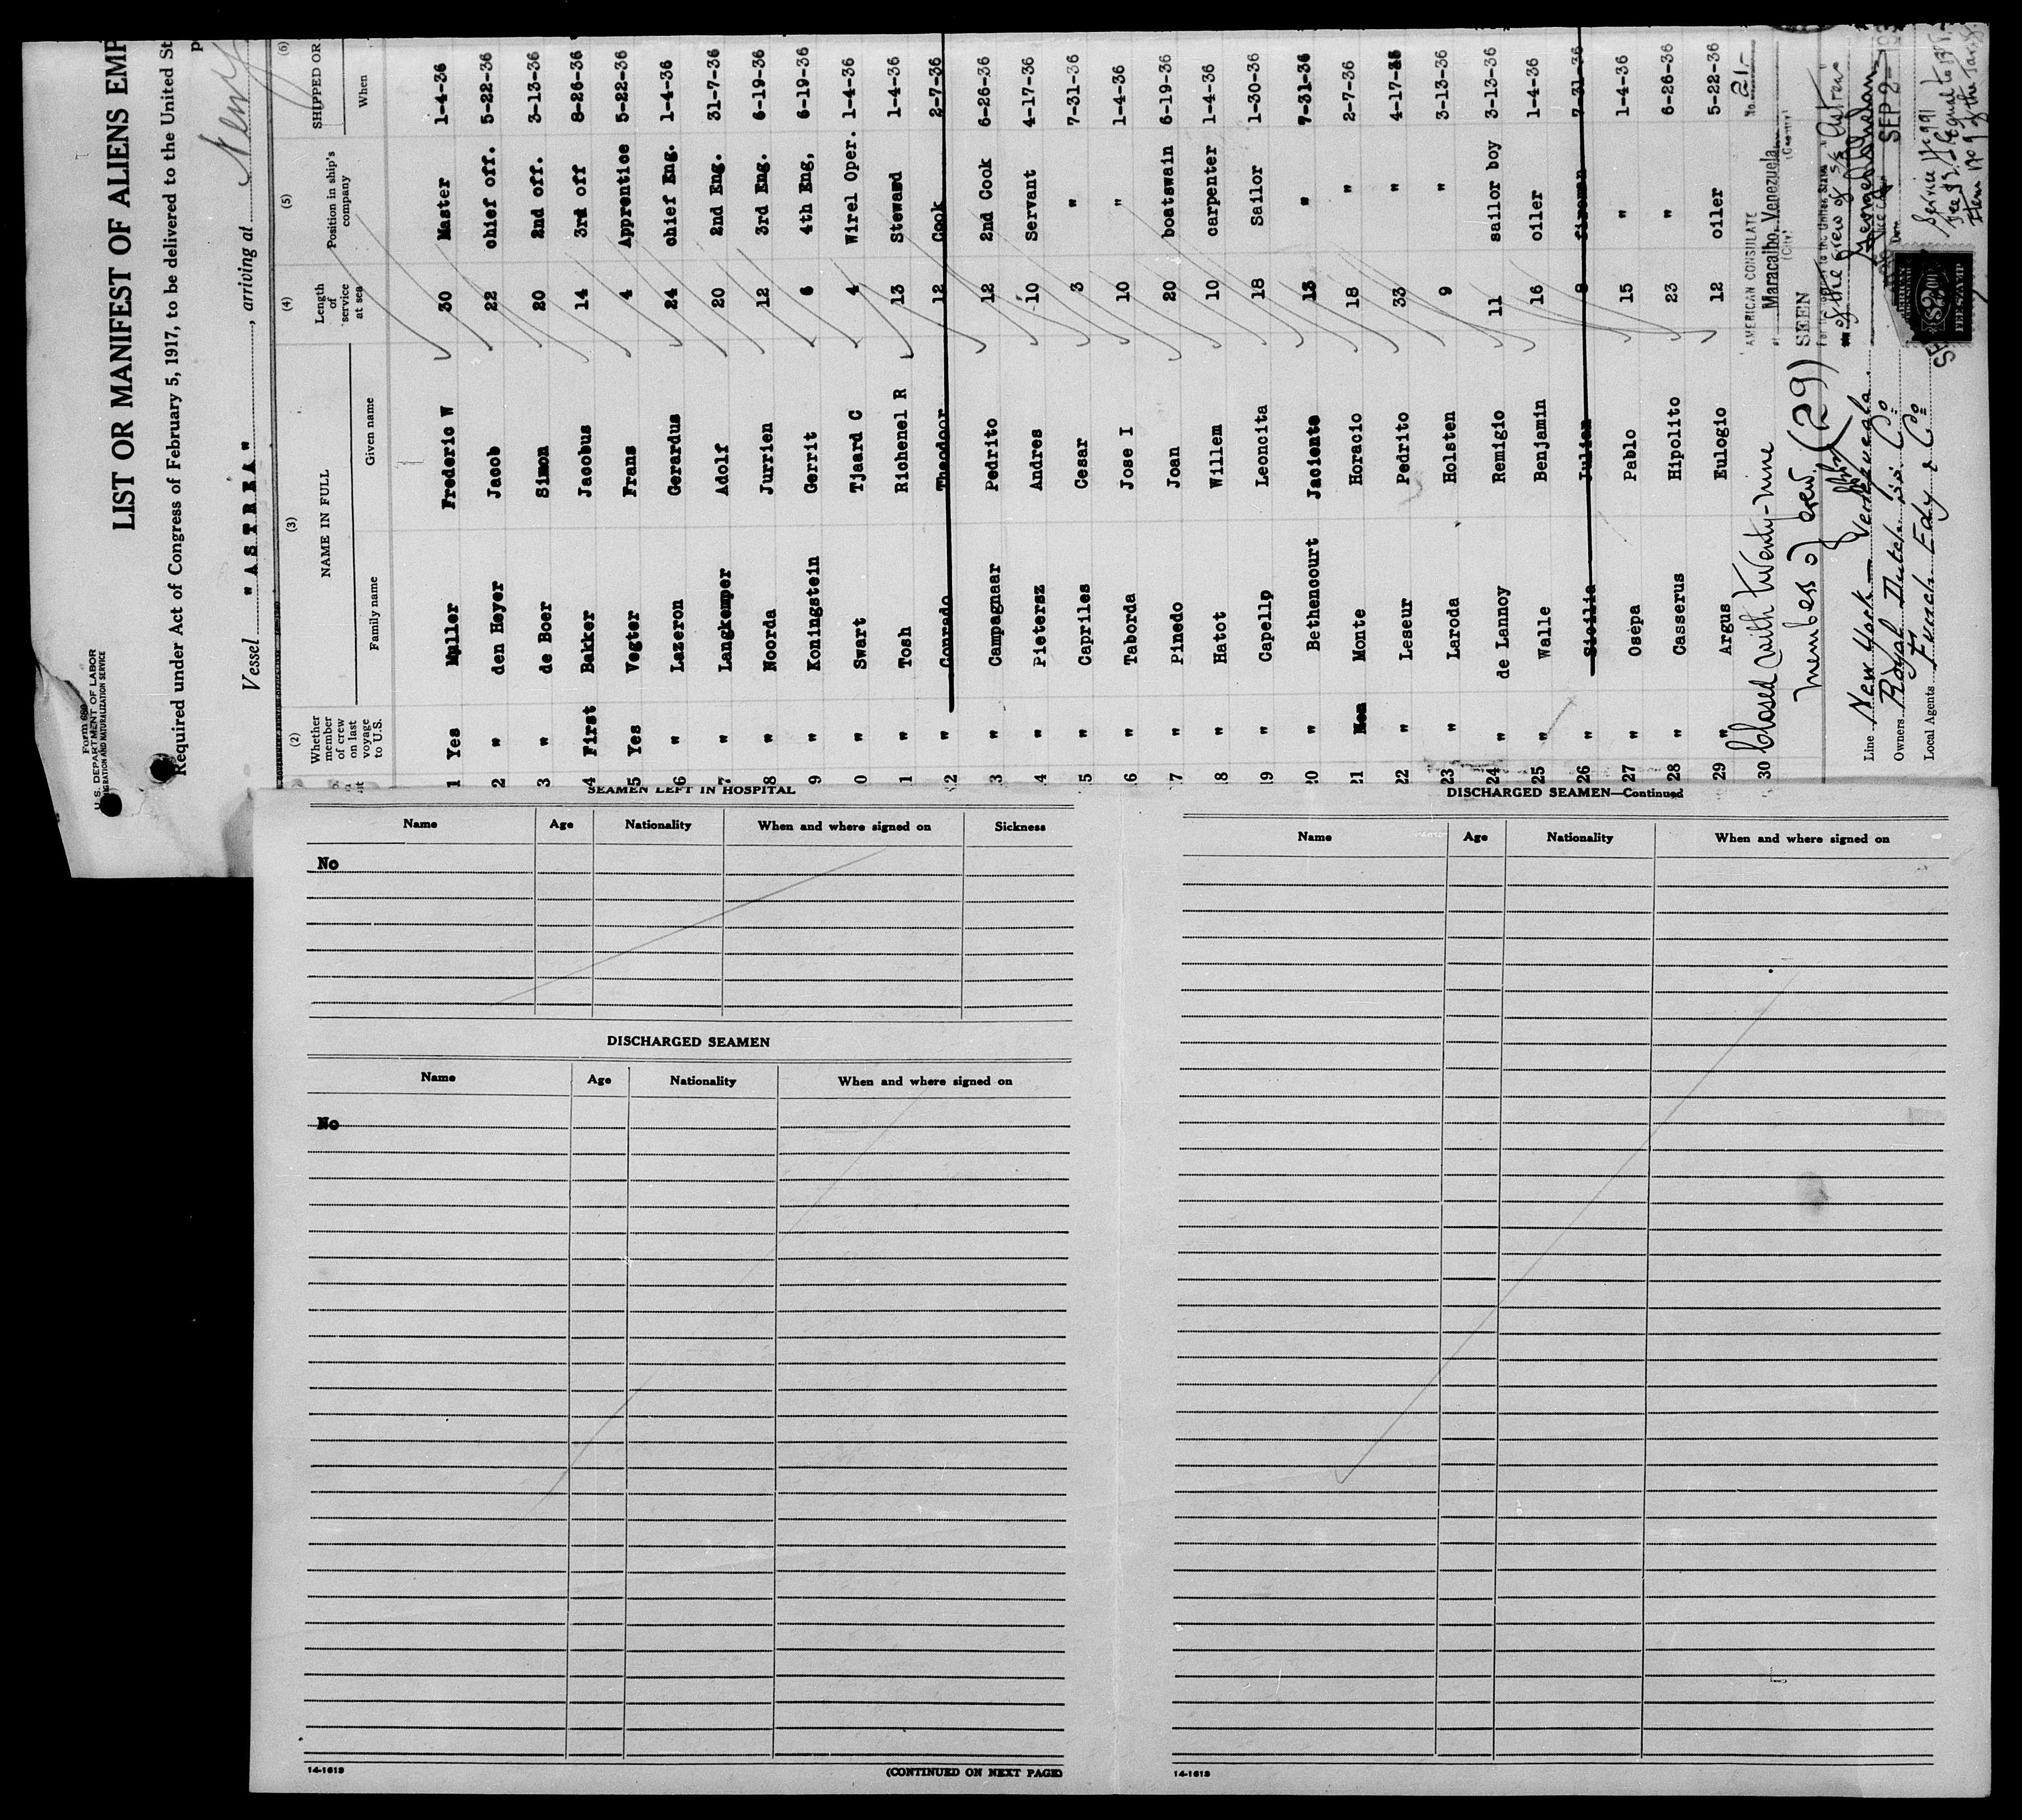 Form 680
U. S. DEPARTMENT OF LABOR
IMMIGRATION AND NATURALIZATION SERVICE
LIST OR MANIFEST OF ALIENS EMP
Required under Act of Congress of February 5, 1917, to be delivered to the United St
Vessel "ASTREA", arriving at New Y
(2) (3) (4) (5) (6)
Whether member of crew on last voyage to U.S. NAME IN FULL Length of service at sea Position in ship's company SHIPPED OR
Family name Given name When
1 Yes Muller Frederic W 30 Master 1-4-36
2 " den Heyer Jacob 22 chief off. 5-22-36
3 " de Boer Simon 20 2nd off. 3-13-36
4 First Bakker Jacobus 14 3rd off 8-26-36
5 Yes Vegter Frans 4 Apprentice 5-22-36
6 " Lazeron Gerardus 24 chief Eng. 1-4-36
7 " Langkemper Adolf 20 2nd Eng. 31-7-36
8 " Noorda Jurrien 12 3rd Eng. 6-19-36
9 " Koningstein Gerrit 6 4th Eng, 6-19-36
0 " Swart Tjaard C 4 Wirel Oper. 1-4-36
1 " Tosh Richenel R 13 Steward 1-4-36
2 " Conrado Theodoor 12 Cook 2-7-36
3 " Campagnaar Pedrito 12 2nd Cook 6-26-36
4 " Pietersz Andres 10 Servant 4-17-36
5 " Capriles Cesar 3 " 7-31-36
6 " Taborda Jose I 10 " 1-4-36
7 " Pinedo Joan 20 boatswain 6-19-36
18 " Hatot Willem 10 carpenter 1-4-36
19 " Capellp Leoncita 18 Sailor 1-30-36
20 " Bethencourt Jaciento 13 " 7-31-36
21 Monte Horacio 18 " 2-7-36
22 " Leseur Pedrito 33 " 4-17-36
23 " Laroda Holsten 9 " 3-13-36
24 " de Lannoy Remigio 11 sailor boy 3-13-36
25 " Walle Benjamin 16 oiler 1-4-36
26 " Sicilia Julien 8 fireman 7-31-36
27 " Osepa Pablo 15 " 1-4-36
28 " Casserus Hipolito 23 " 6-26-36
29 " Argus Eulogio 12 oiler 5-22-36
30 Closed with twenty-nine
members of crew (29)
AMERICAN CONSULATE
No. 21.-
Maracaibo, Venezuela
(City) (Country)
SEEN
of the crew of s/s Astrea
SEP 2-
Service No 991
Fee $2.
Item No 9 of the Tariff
$2.00
FEE STAMP
Line New York - Venezuela.
Owners Royal Dutch s.s. Co
Local Agents Funch Edy & Co
SEAMEN LEFT IN HOSPITAL
Name Age Nationality When and where signed on Sickness
No
DISCHARGED SEAMEN
Name Age Nationality When and where signed on
No
14-1613
(CONTINUED ON NEXT PAGE)
DISCHARGED SEAMEN—Continued
Name Age Nationality When and where signed on
14-1613